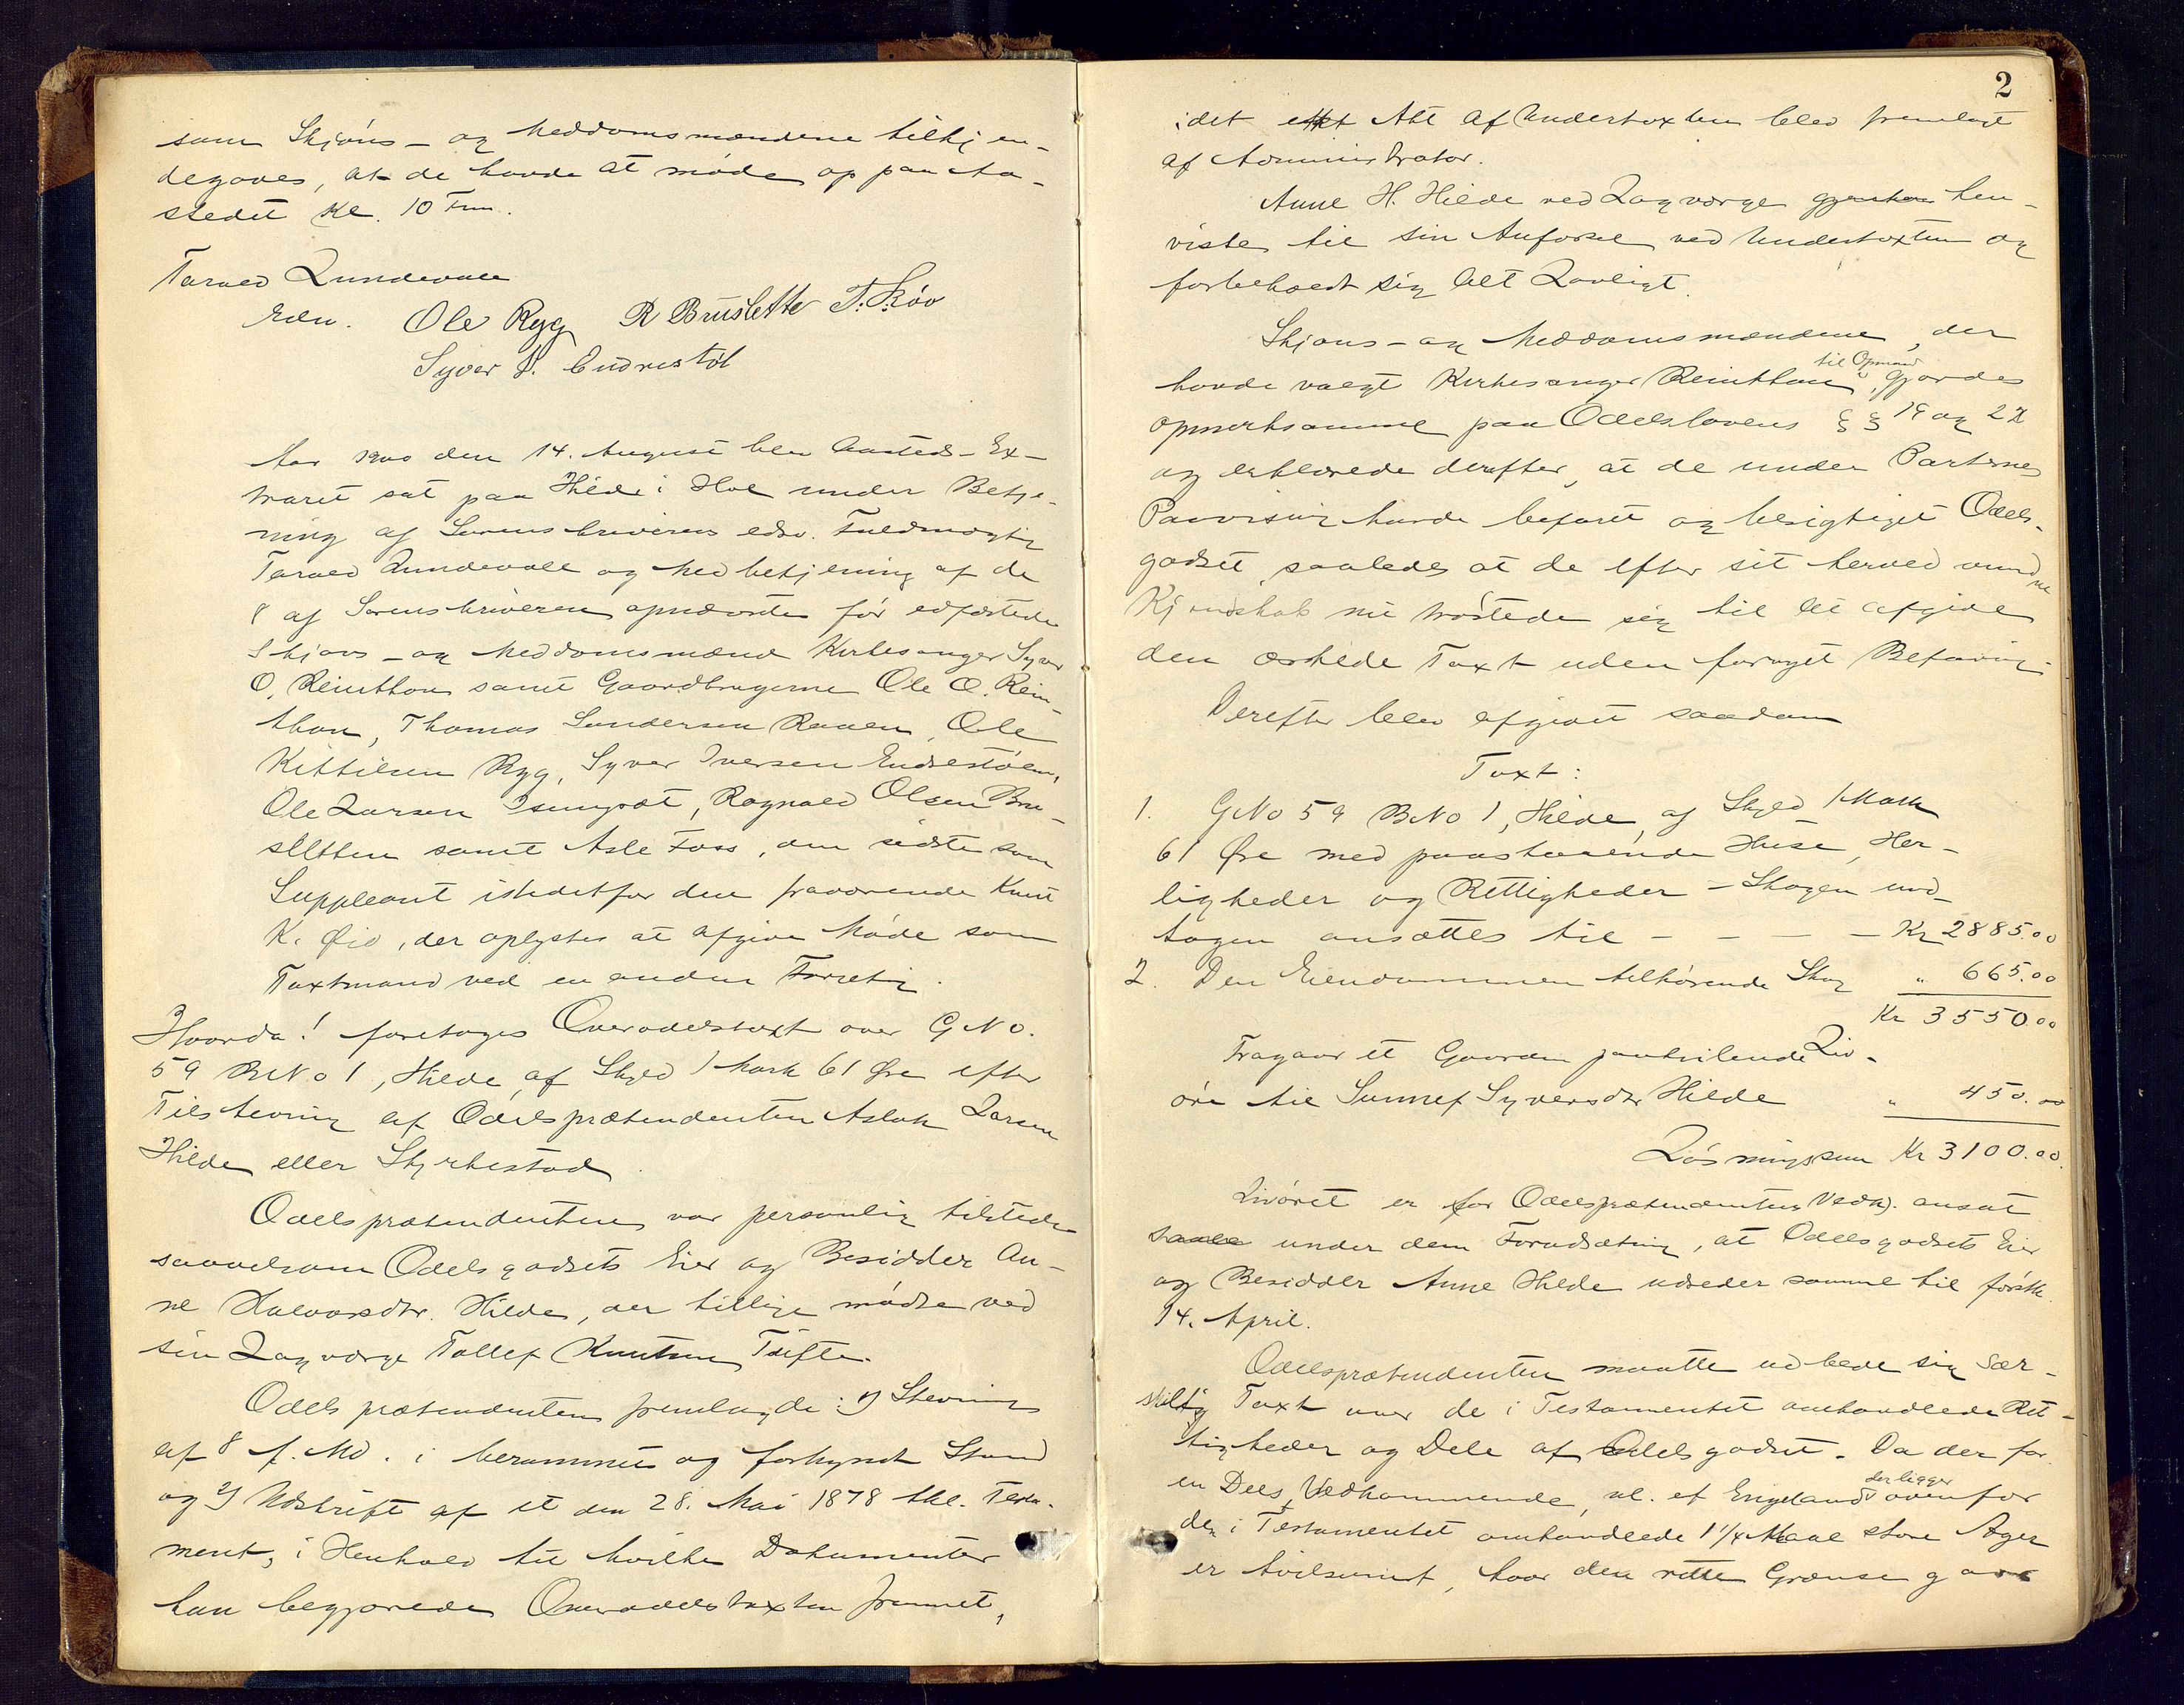 som Skjøns- og Meddomsmændene tilkjen-
degaves, at de havde at møde op paa Aa-
stedet Kl. 10 Fm.
Tarved Lundevall
Edsv. Ole Ryg R Bruslette T. Røv
Syver I. Endrestøl
Aar 1900 den 14. August blev Aasteds-Ex-
traret sat paa Hilde i Hol under Betje-
ning af Sorenskriverens edsv. Fuldmægtig
Tarved Lundevall og Medbetjening af de
8 af Sorenskriveren opnævnte før edfæstede
Skjøns- og Meddomsmænd Kirkesanger Syver
O. Reinthon samt Gaardbrugerne Ole O. Rein-
thon, Thomas Sandersen Raaen, Ole
Kittilsen Ryg, Syver Iversen Endrestølen,
Ole Larsen Isungset, Ragnvald Olsen Bru-
sletten samt Asle Foss, den sidste som
Suppleant istedetfor den fraværende Knut
K. Øio, der oplystes at afgive Møde som
Taxtmand ved en anden Forretng.
Hvorda! foretoges Overodelstaxt over GNo.
59 BNo 1, Hilde, af Skyld 1 Mark 61 Øre efter
Tilstevning af Odelsprætendenten Aslak Larsen
Hilde eller Styrkestad
Odelsprætendenten var personlig tilstede
saavelsom Odelsgodsets Eier og Besidder An-
ne Halvorsdtr. Hilde, der tillige mødte ved
sin Lagværge Tollef Knutsen Tufte.
Odelsprætendenten fremlagde: 1) Stevning
af 8 f. Md. i berammet og forkyndt Stand
og 2) Udskrift af et den 28. Mai 1878 thl. Testa-
ment, i Henhold til hvilke Dokumenter
han begjærede Overodelstaxten fremmet,
2
idet Akt af Undertaxten blev fremlagt
af Administrator.
Anne H. Hilde ved Lagværge hen-
viste til sin Anførsel ved Undertaxten og
forbeholdt sig Alt Lovligt.
Skjøns- og Meddomsmændene, der
havde valgt Kirkesanger Reinthon til Opmand, gjordes
opmerksomme paa Odelslovens §§ 19 og 22
og erklærede derefter, at de under Parternes
Paavisning havde befaret og besigtiget Odels-
godset, saaledes at de efter sit herved vundne
Kjendskab nu trøstede sig til at afgive
den æskede Taxt uden fornyet Befaring.
Derefter blev afgivet saadan
Taxt:
1. GNo 59 BNo 1, Hilde, af Skyld 1 Mark
61 Øre med paastaaende Huse, Her-
ligheder og Rettigheder - Skogen und-
tagen ansættes til - - - - Kr 2885.00
2. Den Eiendommen tilhørende Skog " 665.00
Kr 3550.00
Fragaar et Gaarden paahvilende Liv-
øre til Sunnef Syversdtr Hilde " 450.00
Løsningssum Kr 3100.00.
Livøret er for Odelsprætendentens Vedk. ansat
under den Forudsætning, at Odelsgodsets Eier
og Besidder Anne Hilde udreder samme til førstk.
14. April.
Odelsprætendenten maatte udbede sig sær-
skilt Taxt over de i Testamentet omhandlede Ret-
tigheder og Dele af Odelsgodset. Da der for
en Dels Vedkommende, nl. et Engeland der ligger ovenfor
den i Testamentet omhandlede 1 1/4 Maal store Ager
er tvilsomt, hvor den rette Grænse gaar